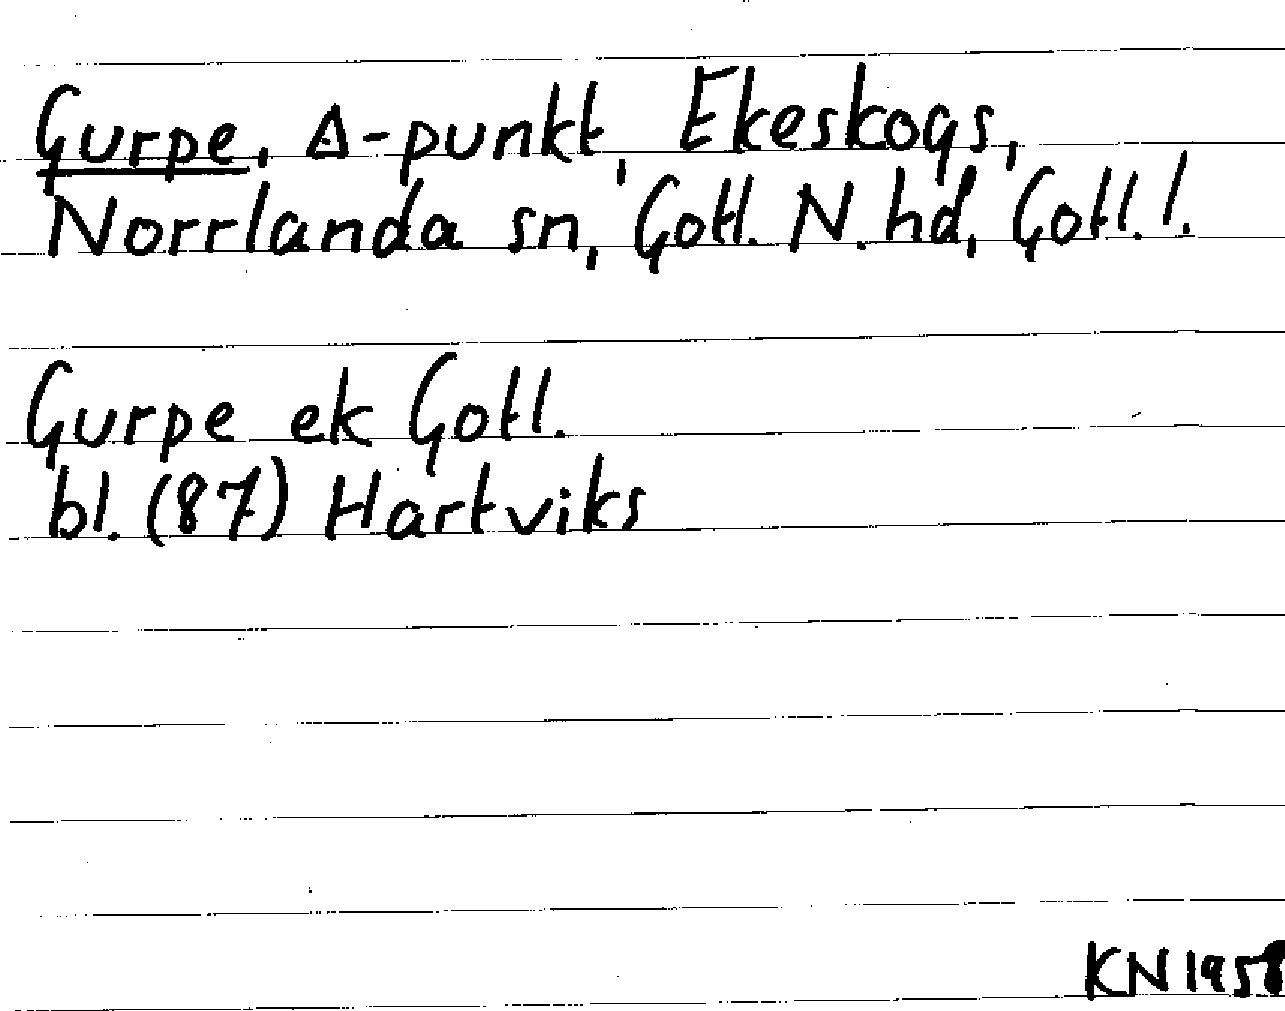 Gurpe, Δ-punkt, Ekeskogs,
Norrlanda sn, Gotl. N. hd, Gotl. l.
Gurpe ek Gotl.
bl. (87) Hartviks
KN 1958